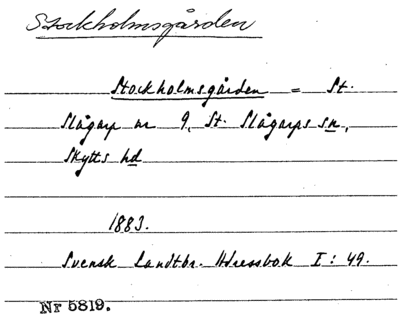 Stockholmsgården
Stockholmsgården = St.
Slågarp nr 9, St. Slågarps sn,
Skytts hd
1883.
Svensk Landtbr. Adressbok I: 49.
Nr 5819.